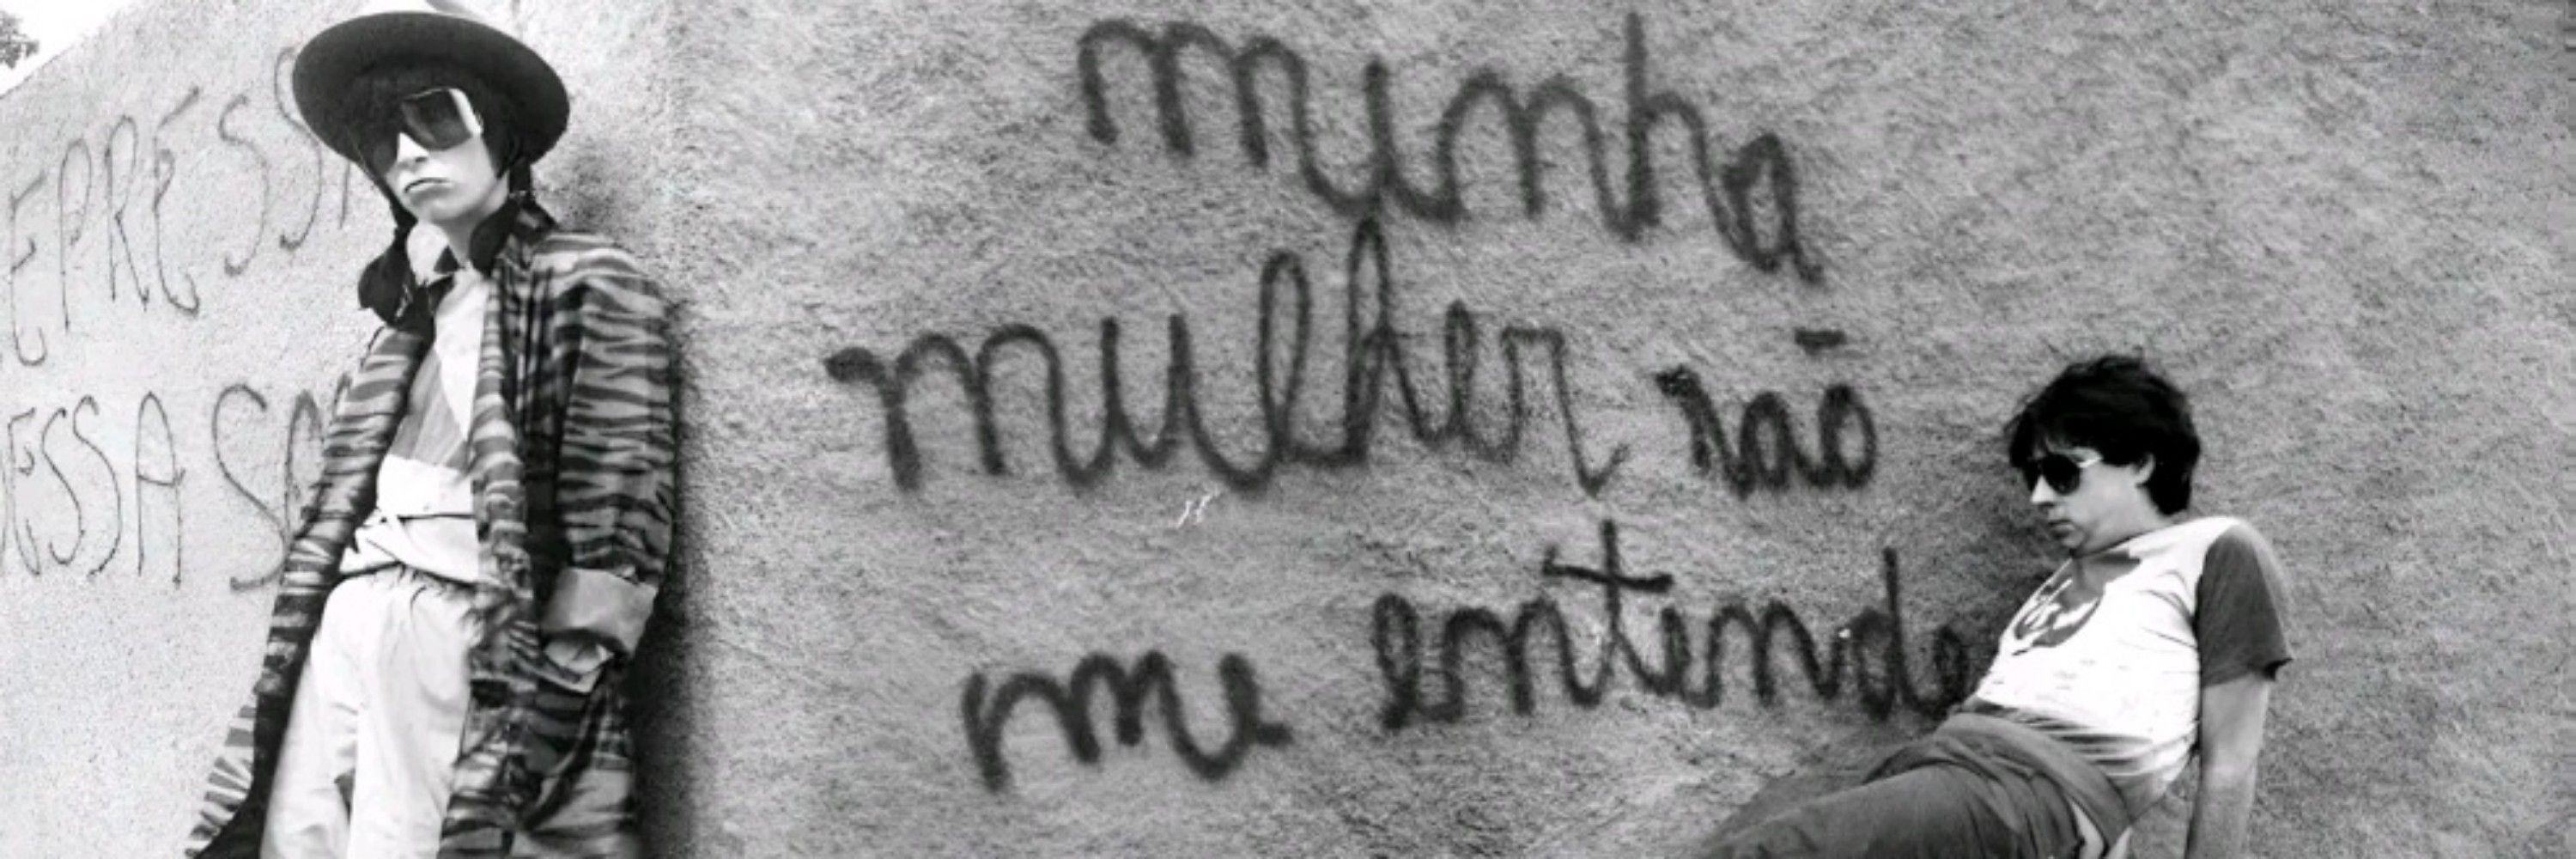 EPRESS
ESSA SO
minha
mulher não
me entende